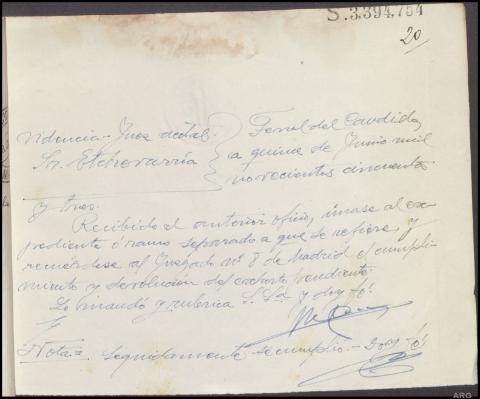 S.3.394.754
20
videncia - Juez actal. Ferrol del Caudillo,
Sr. Etchevarría a quince de Junio mil
novecientos cincuenta
y tres.
Recibido el anterior oficio, únase al ex-
pediente ó ramo separado a que se refiere, y
recuérdese al Juzgado nº 8 de Madrid el cumpli-
miento y devolución del exhorto pendiente.
Lo mandó y rubrica S. Sª y doy fé.
Nota = Seguidamente se cumplió. - Doy fé
ARG